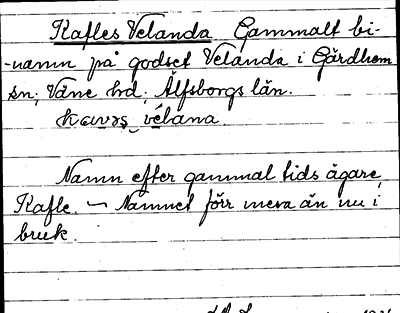 Kafles Velanda Gammalt bi-
-namn på godset Velanda i Gärdhem
sn; Väne hd; Älfsborgs län.
vélana.
Namn efter gammal tids ägare
Kafle. — Namnet förr mera än nu i
bruk.